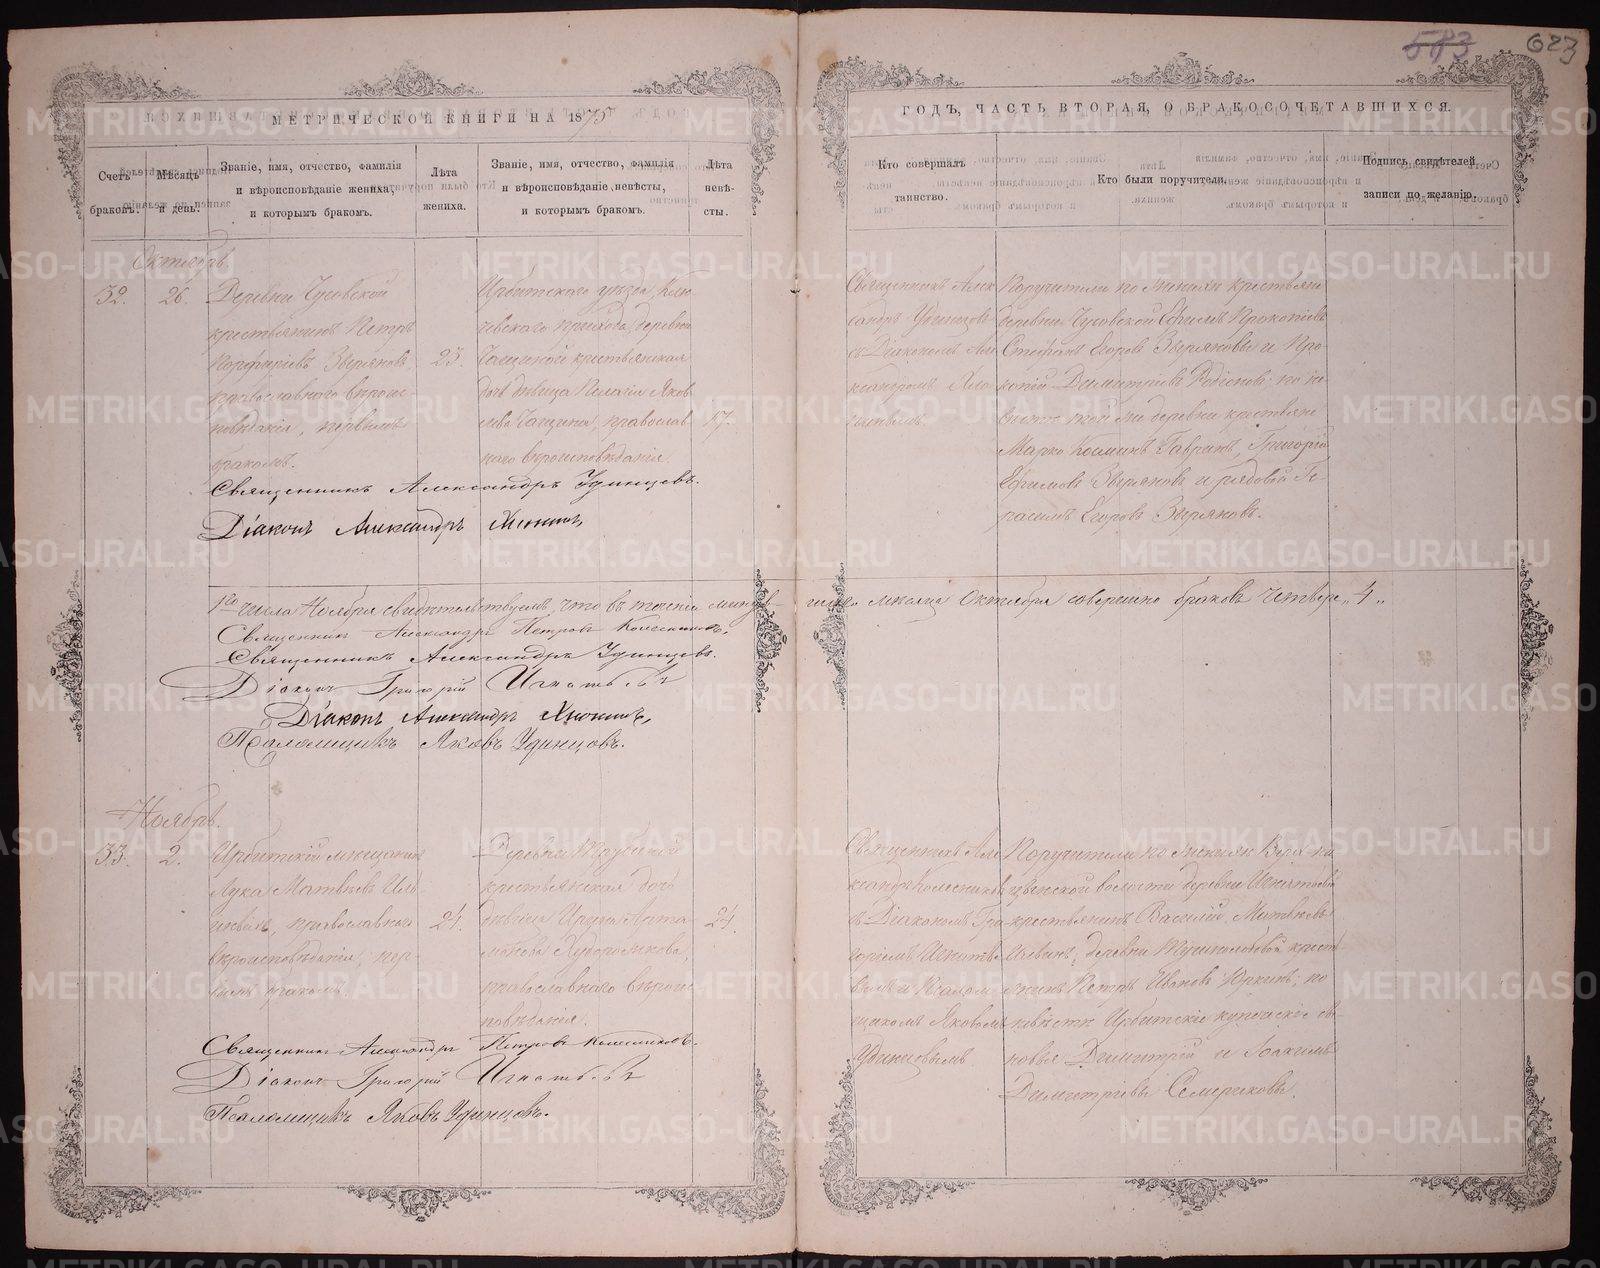 583 623
МЕТРИЧЕСКОЙ КНИГИ НА 1875
ГОДЪ, ЧАСТЬ ВТОРАЯ, О БРАКОСОЧЕТАВШИХСЯ.
Счетъ браковъ.
Мѣсяцъ и день.
Званіе, имя, отчество, фамилія
и вѣроисповѣданіе жениха,
и которымъ бракомъ.
Лѣта
жениха.
Званіе, имя, отчество, фамилія
и вѣроисповѣданіе невѣсты,
и которымъ бракомъ.
Лѣта
невѣ-
сты.
Кто совершалъ
таинство.
Кто были поручители.
Подпись свидѣтелей
записи по желанію.
Октябрь
32.
26.
Деревни Чусовской
крестьянинъ Петръ
Порфиріевъ Зыряновъ,
православнаго вѣроис-
повѣданія, первымъ
бракомъ.
23.
Ирбитскаго уѣзда, Клю-
чевскаго прихода, деревни
Чащиной крестьянская
дочь дѣвица Пелагія Яков-
лева Чащина, православ
наго вѣроисповѣданія.
17.
Священникъ Алек
сандръ Удинцовъ
съ Діакономъ Але
ксандромъ
Поручители по женихѣ крестьяне
деревни Чусовской Ефимъ Прокопіевъ
Стефанъ Егоровъ Зыряновы и Про-
копій Димитріевъ Родіоновъ; по не
вѣстѣ той же деревни крестьяне
Марко Косминъ Гавринъ, Григорій
Ефимовъ Зыряновъ и рядовой Ге-
расимъ Егоровъ Зыряновъ.
Священникъ Александръ Удинцевъ.
Діаконъ Александръ
1го числа Ноября свидѣтельствуемъ, что въ теченіи минув-
шаго мѣсяца Октября совершено браковъ четыре „4„
Священникъ Александръ Петровъ Колесниковъ.
Священникъ Александръ Удинцевъ.
Діаконъ Григорій Игнатьевъ
Діаконъ Александръ
Псаломщикъ Яковъ Удинцовъ.
Ноябрь.
33.
2.
Ирбитскій мѣщанинъ
Лука Матвѣевъ Иль-
иныхъ, православнаго
вѣроисповѣданія, пер-
вымъ бракомъ.
24.
Деревни
крестьянская дочь
дѣвица Ирина Арта-
монова Худорожкова,
православнаго вѣроис-
повѣданія.
24.
Священникъ Але
ксандръ Колесниковъ
съ Діакономъ Гри
горіемъ Игнатье
вымъ и Псалом
щикомъ Яковомъ
Удинцовымъ
Поручители по женихѣ
волости деревни Игнатьевой
крестьянинъ Василій Матвѣевъ
деревни крест-
янинъ Петръ Ивановъ Юркинъ; по
невѣстѣ Ирбитскіе купеческіе сы-
новья Димитрій и Іоакимъ
Димитріевы Семериковы.
Священникъ Александръ Петровъ Колесниковъ.
Діаконъ Григорій Игнатьевъ
Псаломщикъ Яковъ Удинцовъ.
METRIKI.GASO-URAL.RU